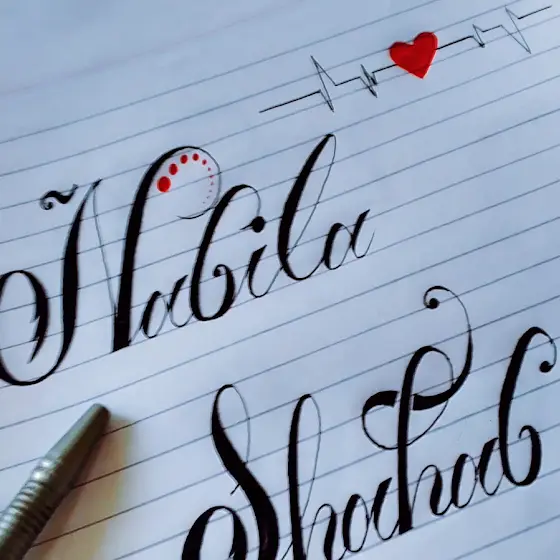 Nabila
Shahab